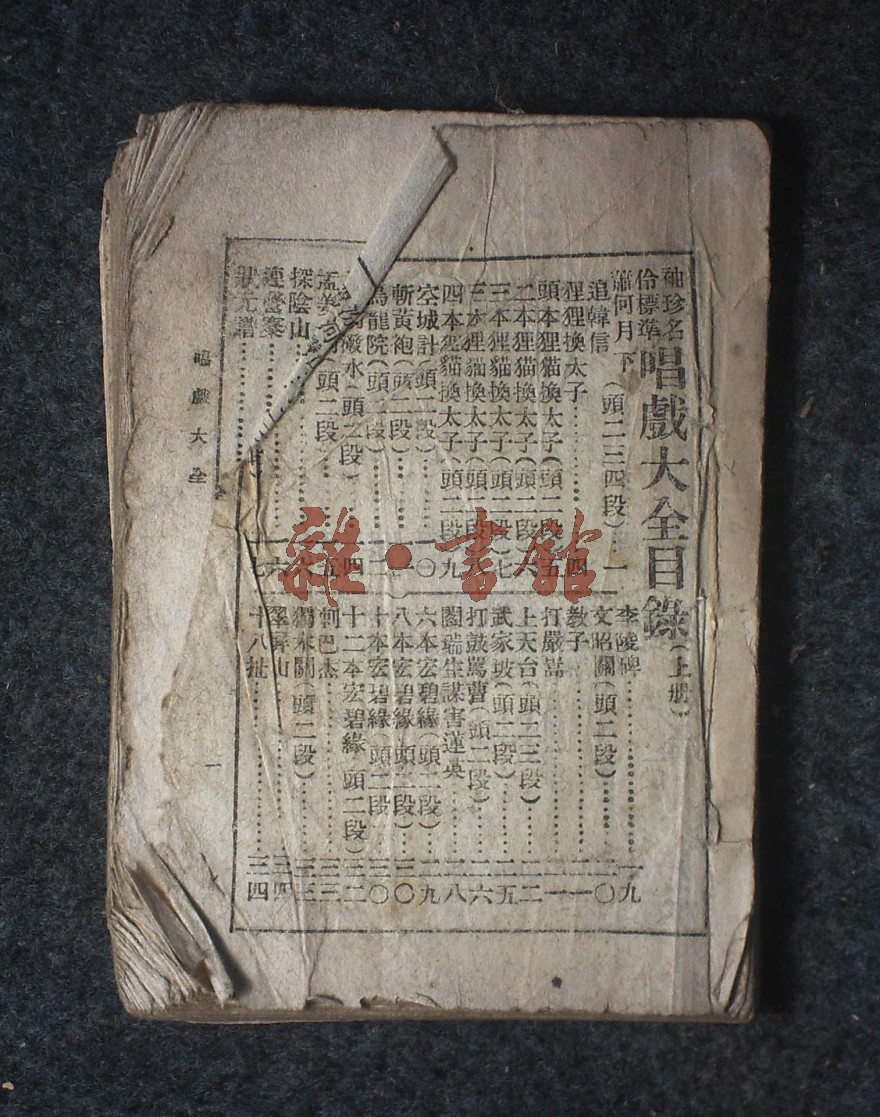 袖珍名伶標準唱戲大全目錄(上册)
蕭何月下追韓信(頭二三四段)…一
狸狸換太子…四
頭本狸猫換太子(頭二段…五
二本狸貓換太子(頭二段…六
三本狸貓換太子(頭二段)七
三本狸貓換太子(頭二段八
四本狸貓換太子(頭二段九
空城計(頭二段)…一〇
斬黃袍(頭二段)…一一
烏龍院(頭二段)…一二
潑水(頭二段)…一四
孟姜(頭二段…一五
探陰山…
連營寨…一六
狀元譜…一七
李陵碑…一九
文昭關(頭二段)…二〇
教子…二一
打嚴嵩…二一
上天台(頭二三段)…二二
武家坡(頭二段)…二五
打鼓罵曹(頭二段)…二六
閻瑞生謀害蓮英…二八
六本宏碧緣(頭二段)…二九
八本宏碧緣(頭二段)…三〇
十本宏碧緣(頭二段…三〇
十二本宏碧緣 頭二段)三二
刺巴杰…三三
獨木關(頭二段)…三三
翠屏山…三四
十八扯…三四
唱戲大全
一
雜·書館